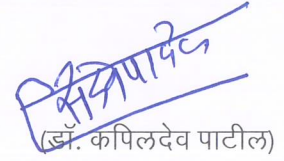 (डॉ. कपिलदेव पाटील)